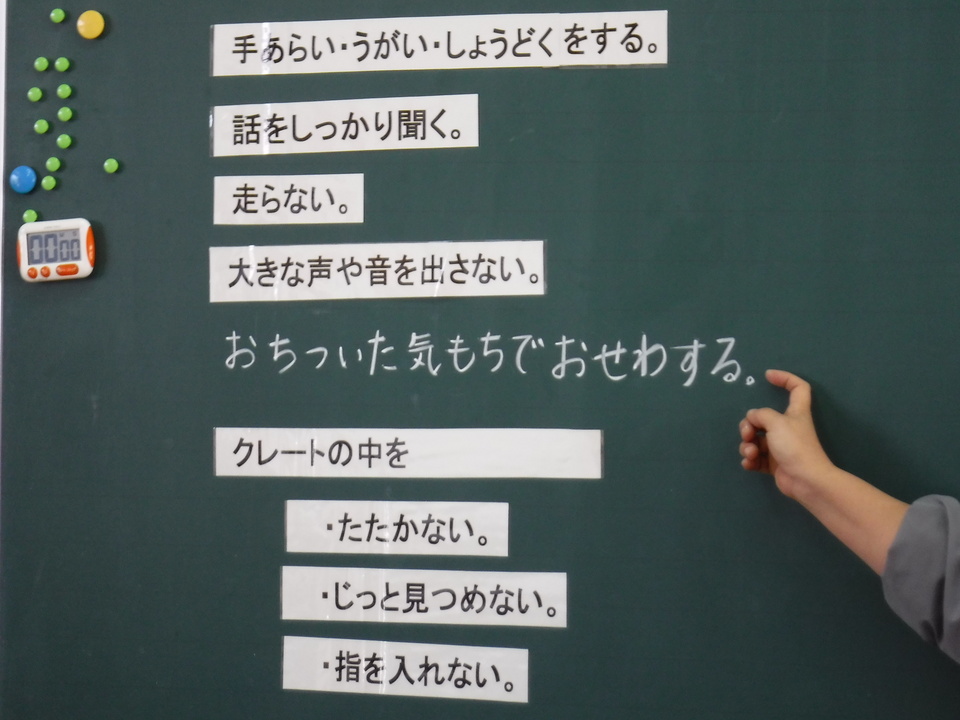 手あらい・うがい・しょうどくをする。
話をしっかり聞く。
走らない。
00:00
大きな声や音を出さない。
おちついた気もちでおせわする。
クレートの中を
・たたかない。
・じっと見つめない。
・指を入れない。